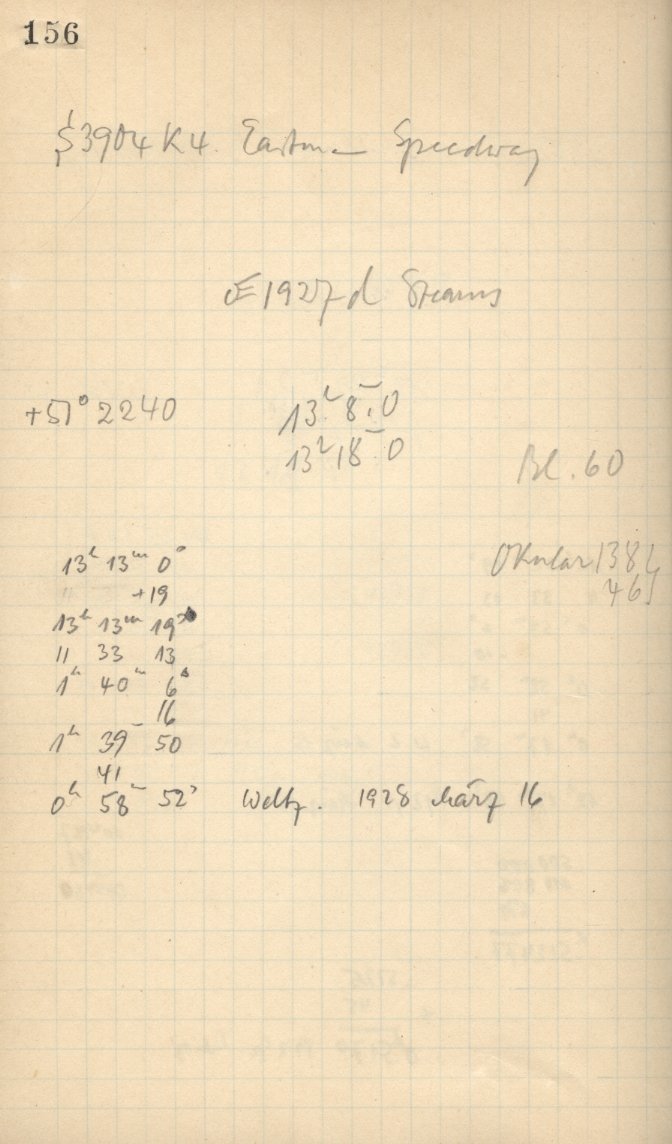 156
3904 K4. Eastman Speedway
1927 d Stearns
+51° 2240 13ʰ 8ᵐ.0
13ʰ 18ᵐ.0
Bl. 60
13ʰ 13ᵐ 0ˢ
Okular 138
+19
46
13ʰ 13ᵐ 19ˢ
11 33 13
1ʰ 40ᵐ 6ˢ
16
1ʰ 39ᵐ 50
41
0ʰ 58ᵐ 52ˢ Weltz. 1928 März 16